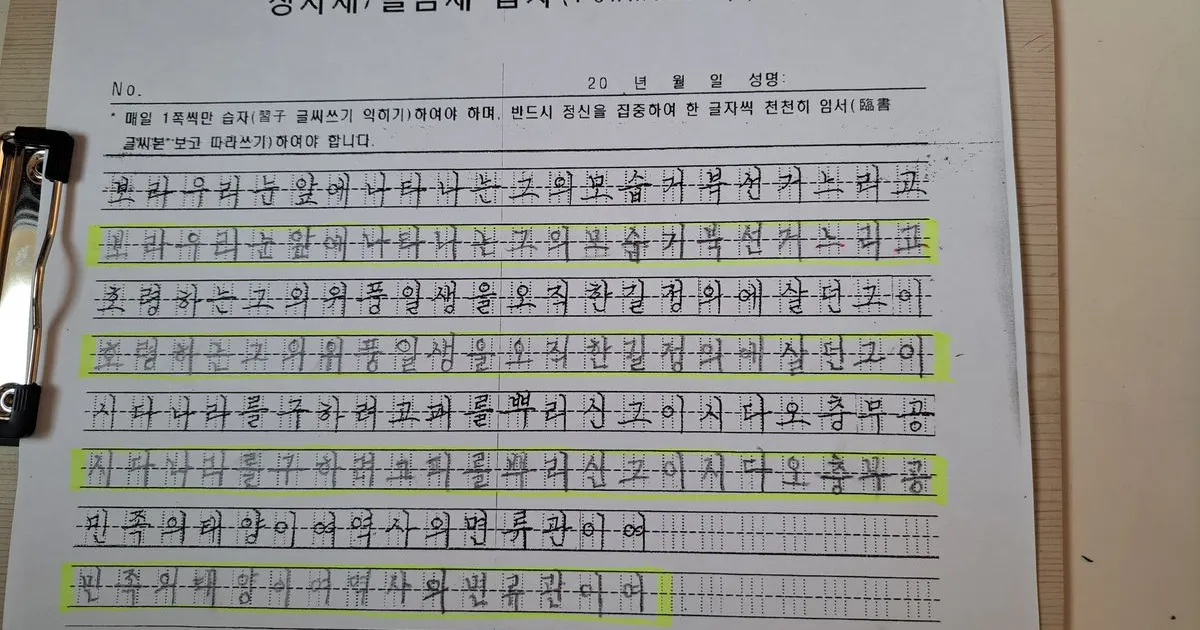 No. 20 년 월 일 성명:
* 매일 1쪽씩만 습자(習子 글씨쓰기 익히기)하여야 하며, 반드시 정신을 집중하여 한 글자씩 천천히 임서(臨書
글씨본 보고 따라쓰기)하여야 합니다.
보라우리눈앞에나타나는그의모습거북선거느리고
보라우리눈앞에나타나는그의모습거북선거느리고
호령하는그의위풍일생을오직한길정의에살던그이
호령하는그의위풍일생을오직한길정의에살던그이
시다나라를구하려고피를뿌리신그이시다오충무공
시다나라를구하려고피를뿌리신그이시다오충무공
민족의태양이여역사의면류관이여
민족의태양이여역사의면류관이여